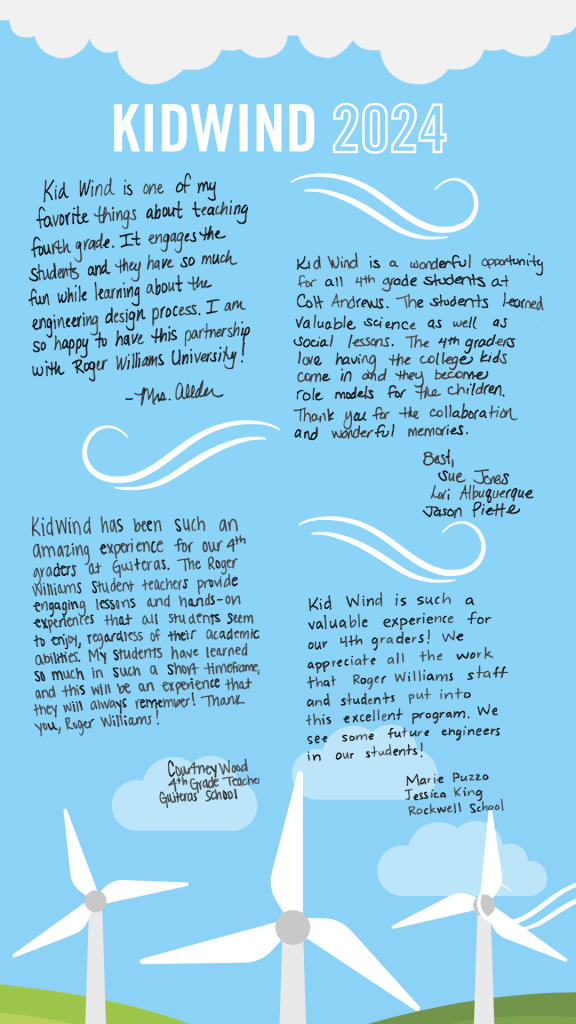 KIDWIND 2024
Kid Wind is one of my
favorite things about teaching
fourth grade. It engages the
students and they have so much
fun while learning about the
engineering design process. I am
so happy to have this partnership
with Roger Williams University!
-Mrs. Allder
Kid Wind is a wonderful opportunity
for all 4th grade students at
Colt Andrews. The students learned
valuable science as well as
social lessons. The 4th graders
love having the college kids
come in and they become
role models for the children.
Thank you for the collaboration
and wonderful memories.
Best,
Sue Jones
Lori Albuquerque
Jason Piette
KidWind has been such an
amazing experience for our 4th
graders at Guiteras. The Roger
Williams Student teachers provide
engaging lessons and hands-on
experiences that all students seem
to enjoy, regardless of their academic
abilities. My students have learned
so much in such a short timeframe,
and this will be an experience that
they will always remember! Thank
you, Roger Williams!
Courtney Wood
4th Grade Teacher
Guiteras School
Kid Wind is such a
valuable experience for
our 4th graders! We
appreciate all the work
that Roger Williams staff
and students put into
this excellent program. We
see some future engineers
in our students!
Marie Puzzo
Jessica King
Rockwell School